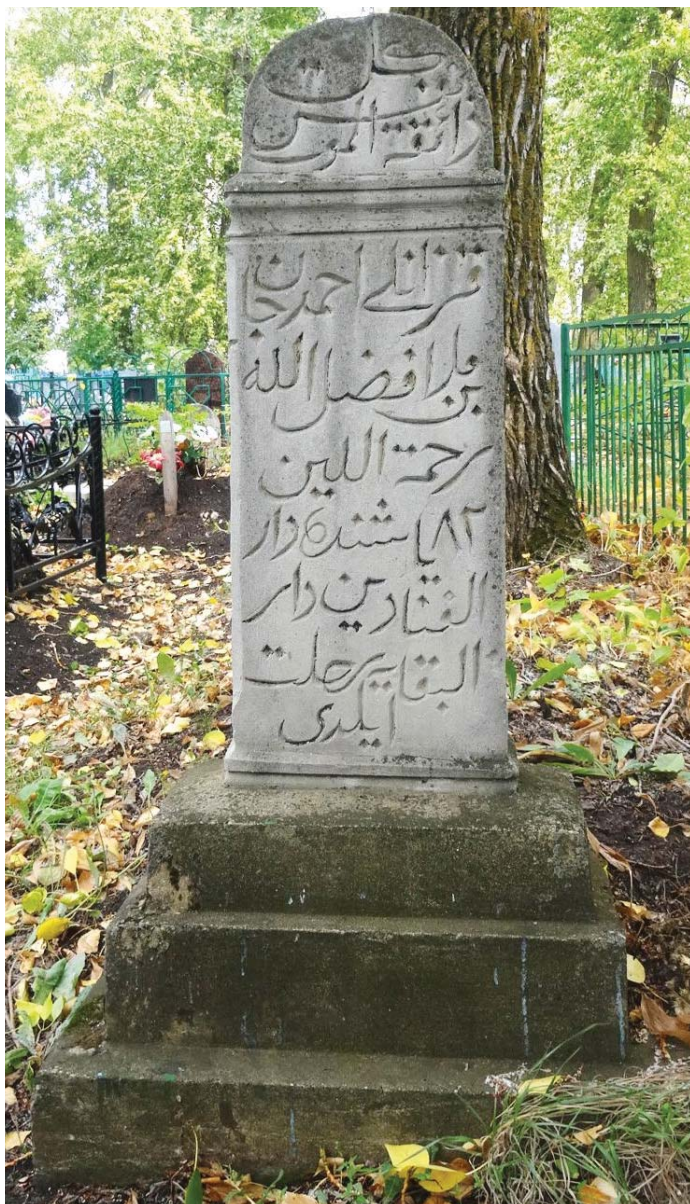 كل نفس
ذائقة الموت
قزانلى احمدجان
بن ملا فضل الله
رحمة اللين
٨٢ ياشنده دار
الفنادين دار
البقايه رحلت
ايلدى